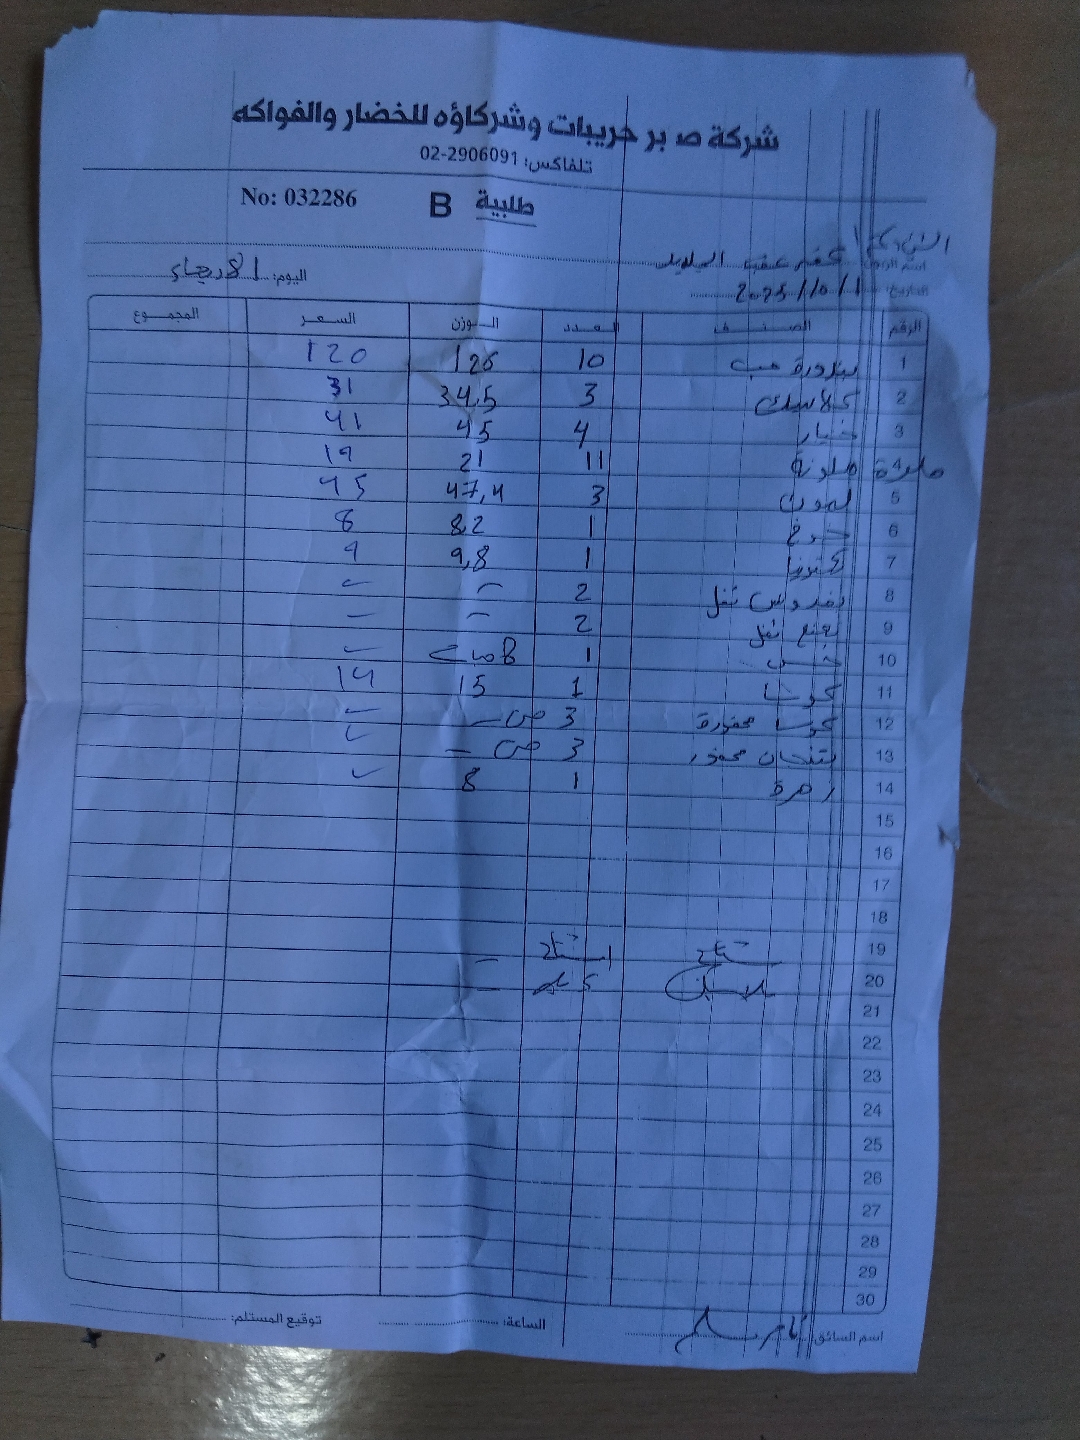 شركة صابر حريبات وشركاؤه للخضار والفواكه
تلفاكس: 02-2906091
No: 032286 B طلبية
كفر عقب البلد
اليوم: الاربعاء
التاريخ: 2025/10/1
الرقم الصنف العدد الوزن السعر المجموع
1 بندورة حب 10 126 120
2 كلاسيك 3 34,5 31
3 خيار 4 45 41
4 ملونة 11 21 19
5 ليمون 3 47,4 45
6 1 8,2 8
7 1 9,8 9
8 بقدونس نفل 2 –
9 نعنع نفل 2 – –
10 خس 1
11 كوسا 1 15 14
12 كوسا محفورة 3 صحن –
13 بتنجان محفور 3 صحن –
14 زهرة 1 8
15
16
17
18
19
20
21
22
23
24
25
26
27
28
29
30
اسم السائق: الساعة: توقيع المستلم: